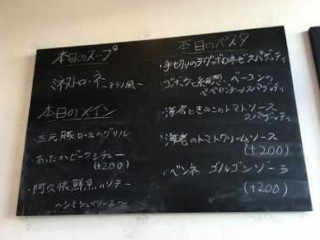 本日のスープ
ミネストローネ 〜ミラノ風〜
本日のメイン
・三元豚ロースのグリル
・あったかビーフシチュー
(+200)
・阿久根鮮魚のソテー
本日のパスタ
・手切りのラグー ボロネーゼスパゲッティ
ベーコンの
ペペロンチーノスパゲッティ
・海老ときのこのトマトソース
スパゲッティ
・海老のトマトクリームソース
(+200)
・ペンネ ゴルゴンゾーラ
(+200)